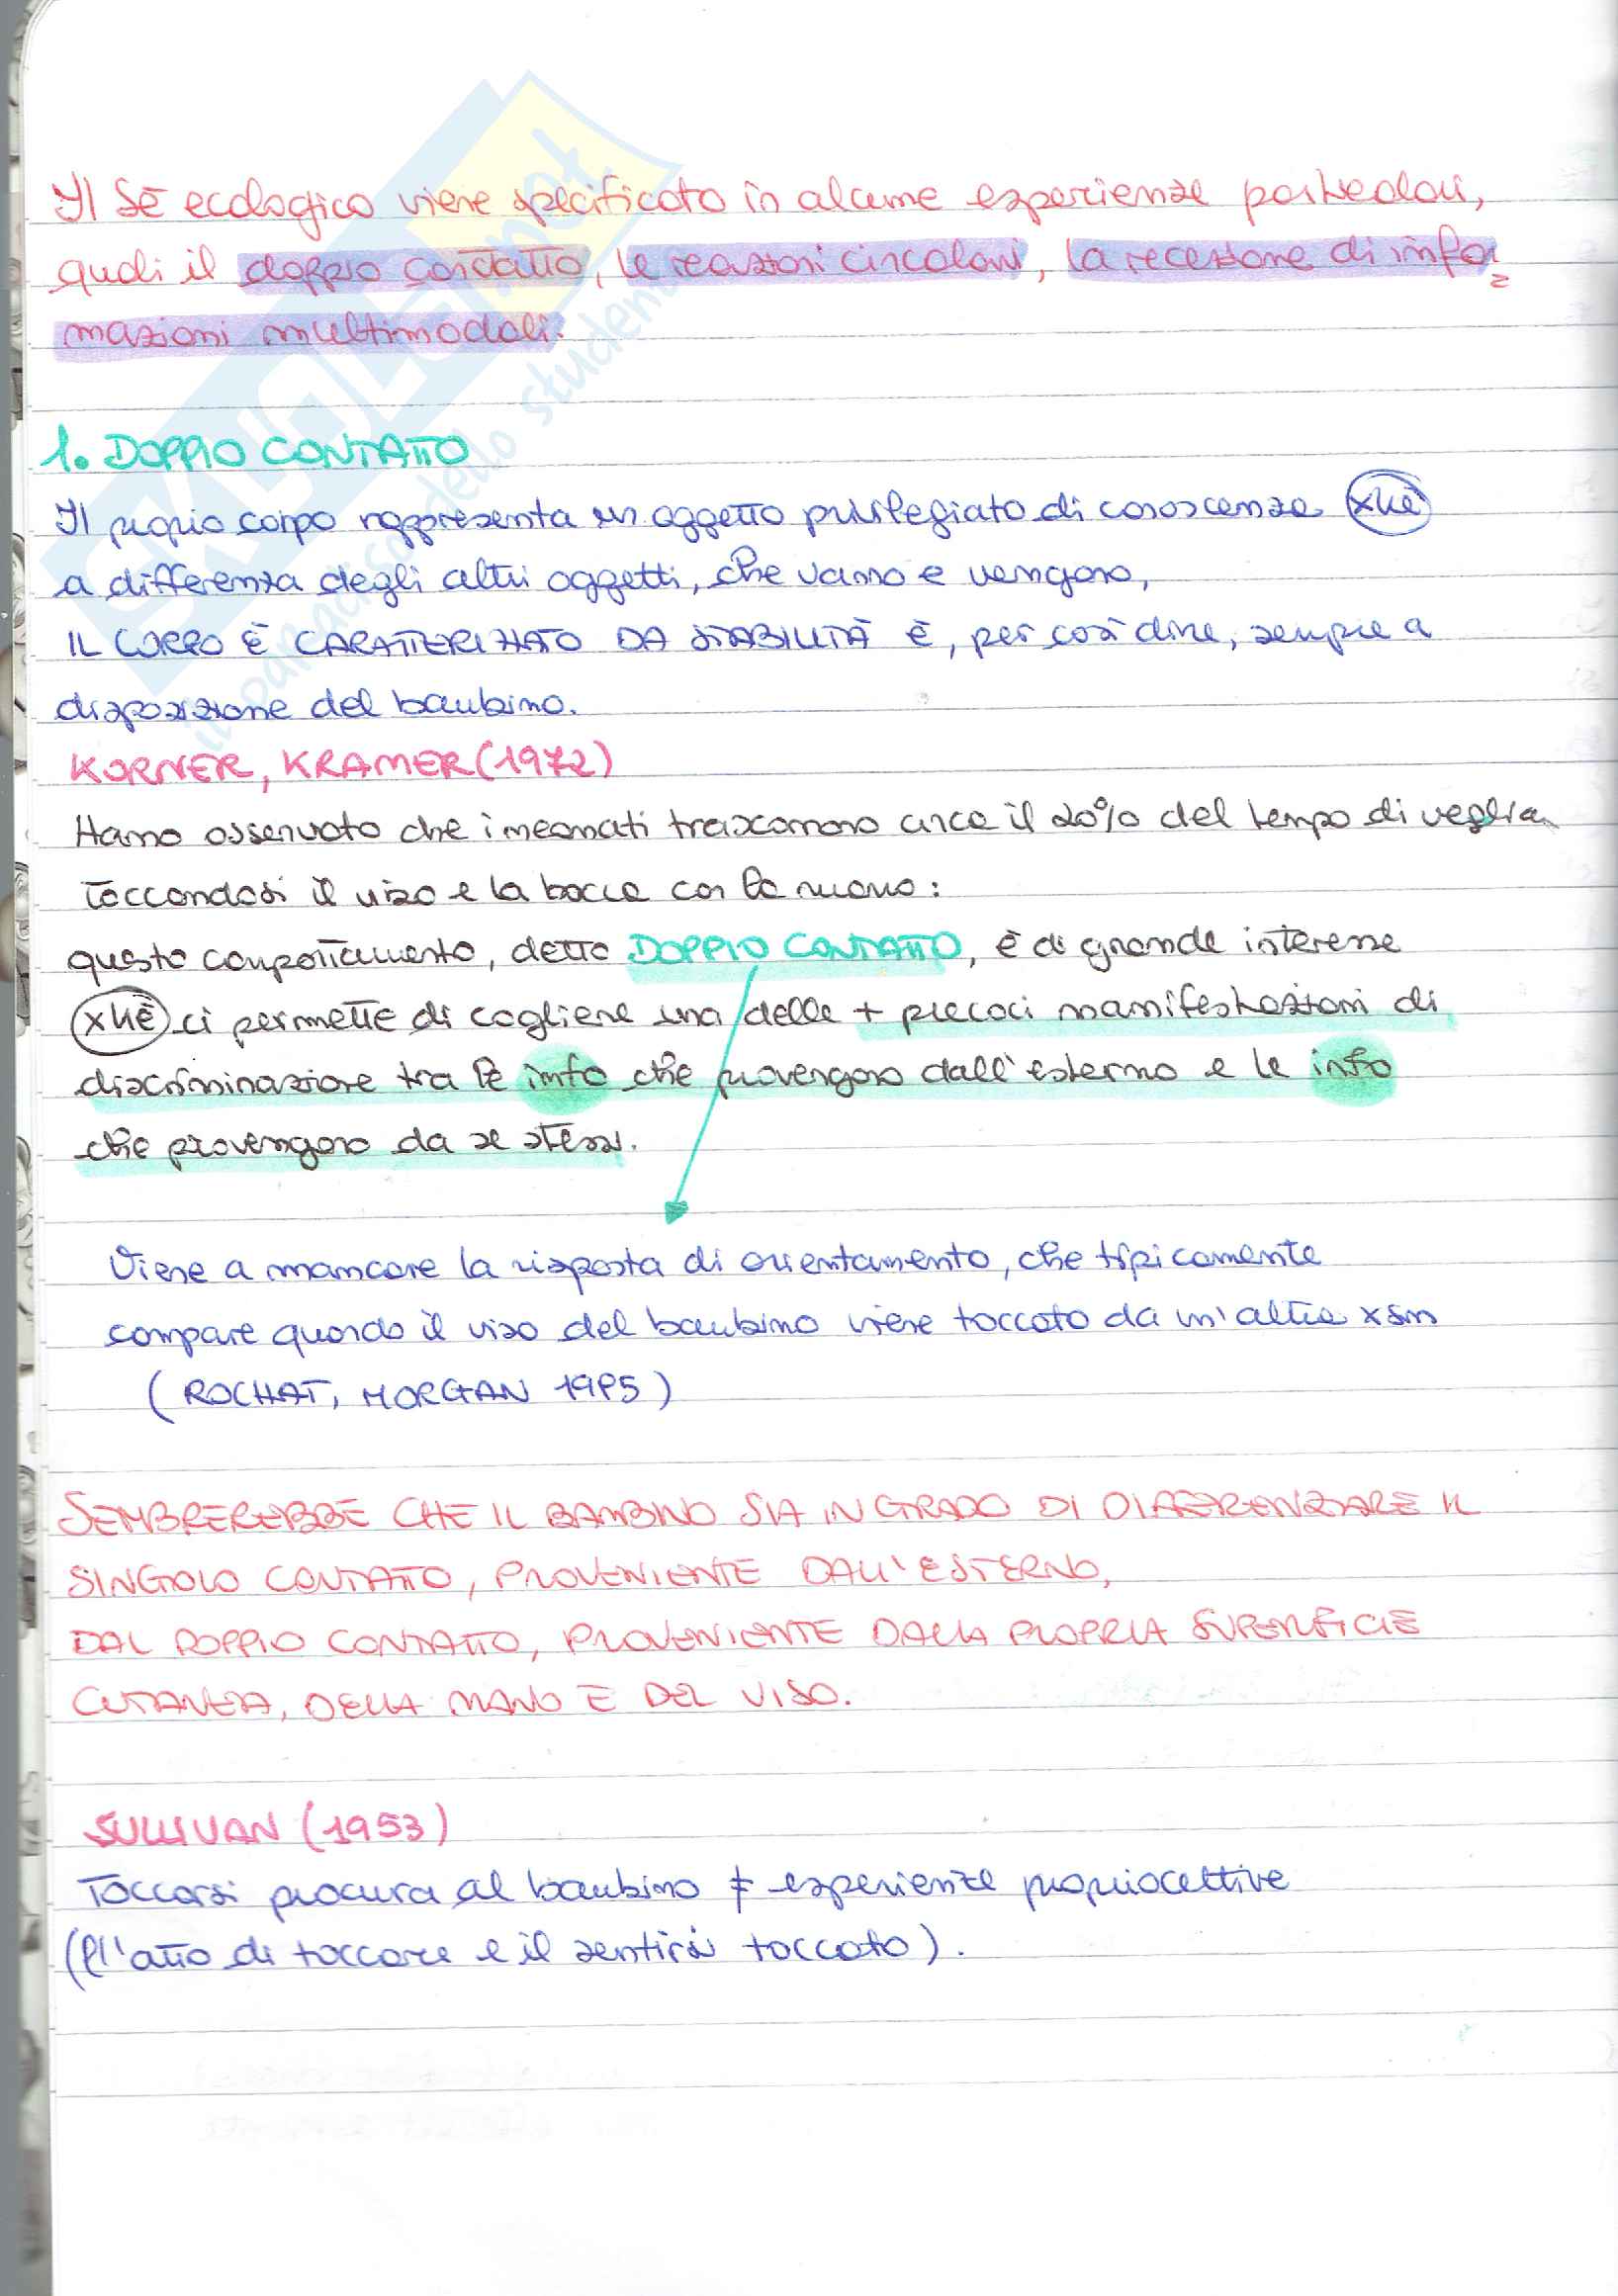 Il Sé ecologico viene specificato in alcune esperienze particolari,
quali il doppio contatto, le reazioni circolari, la recezione di infor
mazioni multimodali.
1. DOPPIO CONTATTO
Il proprio corpo rappresenta un oggetto privilegiato di conoscenza xké
a differenza degli altri oggetti, che vanno e vengono,
IL CORPO È CARATTERIZZATO DA STABILITÀ È, per così dire, sempre a
disposizione del bambino.
KORNER, KRAMER (1972)
Hanno osservato che i neonati trascorrono circa il 20% del tempo di veglia
toccandosi il viso e la bocca con la mano:
questo comportamento, detto DOPPIO CONTATTO, è di grande interesse
xké ci permette di cogliere una delle + precoci manifestazioni di
discriminazione tra le info che provengono dall'esterno e le info
che provengono da se stessi.
Viene a mancare la risposta di orientamento, che tipicamente
compare quando il viso del bambino viene toccato da un'altra xsn
(ROCHAT, MORGAN 1995)
SEMBREREBBE CHE IL BAMBINO SIA IN GRADO DI DIFFERENZIARE IL
SINGOLO CONTATTO, PROVENIENTE DALL'ESTERNO,
DAL DOPPIO CONTATTO, PROVENIENTE DALLA PROPRIA SUPERFICIE
CUTANEA, DELLA MANO E DEL VISO.
SULLIVAN (1953)
Toccarsi procura al bambino ≠ esperienze propriocettive
(l'atto di toccare e il sentirsi toccato).
SKUOLA.net
il paradiso dello studente